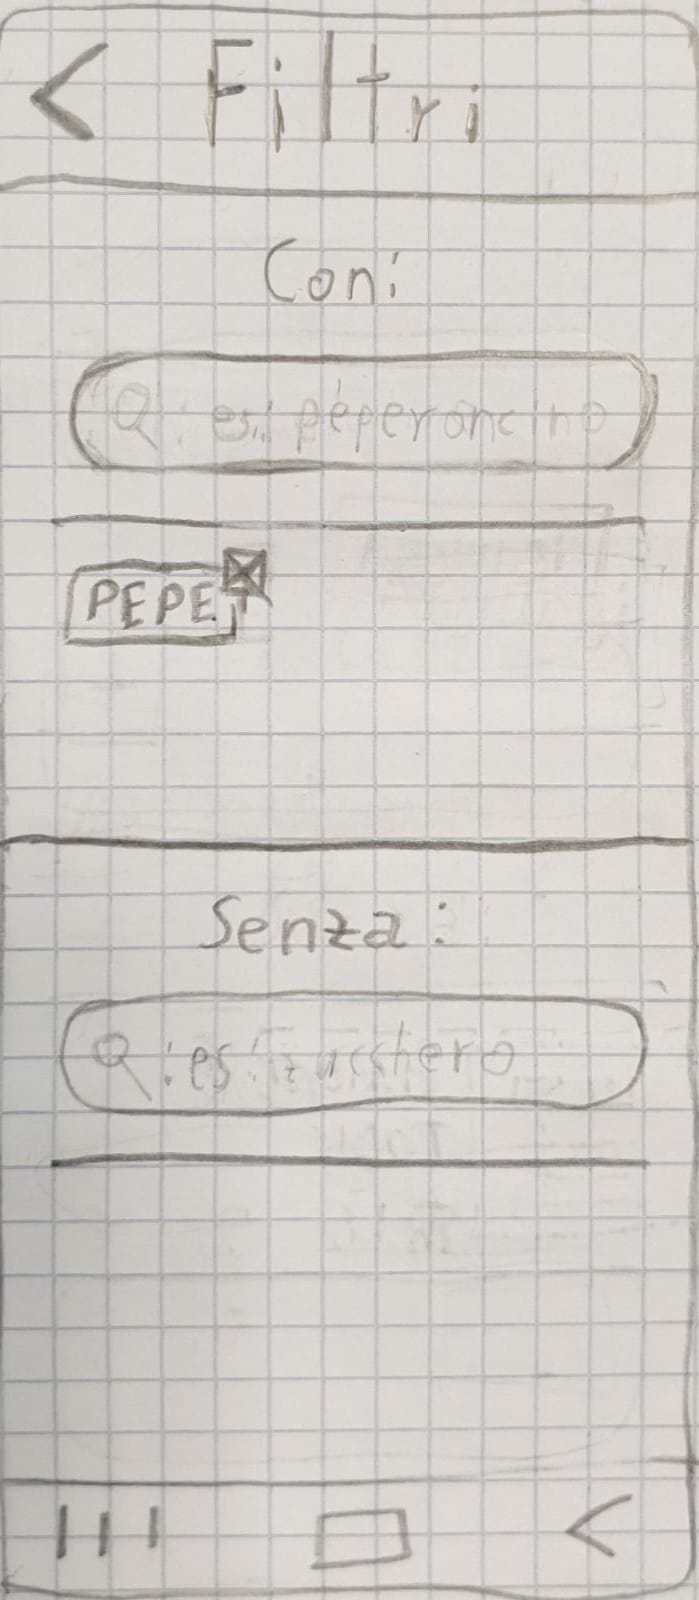 < Filtri
Con:
Q : es: peperoncino
PEPE
Senza:
Q : es: zucchero